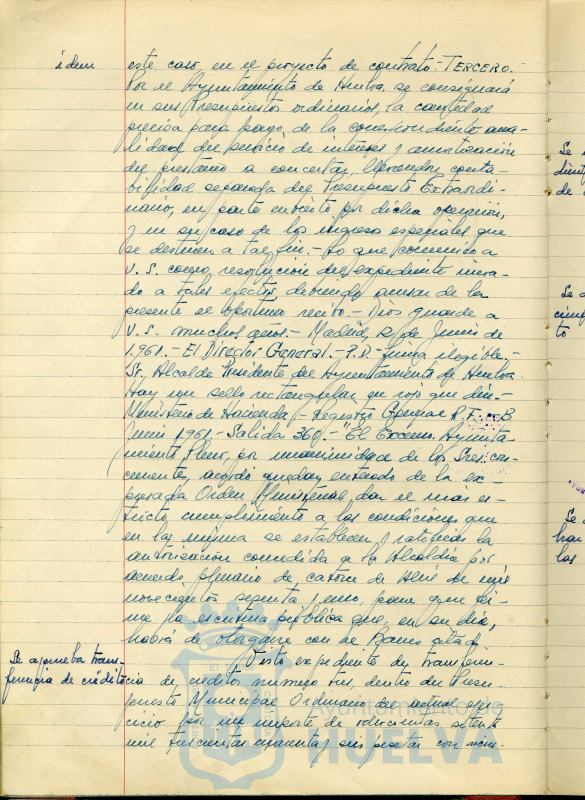 idem
este caso, en el proyecto de contrato.- TERCERO.-
Por el Ayuntamiento de Huelva, se consignará
en sus Presupuestos ordinarios, la cantidad
precisa para pago, de la correspondiente anua-
lidad del servicio de intereses y amortización
del prestamo a concertar, llevandose conta-
bilidad separada del Presupuesto Extraordi-
nario, en parte nutrido por dicha operación,
y en su caso de los ingresos especiales que
se destinen a tal fin.- Lo que comunico a
V.S. como resolución del expediente incoa-
do a tales efectos, debiendo acusar de la
presente el oportuno recibo.- Dios guarde a
V.S. muchos años.- Madrid, de Junio de
1.961.- El Director General.- P.D.- firma ilegible.-
Sr. Alcalde Presidente del Ayuntamiento de Huelva.
Hay un sello rectangular en rojo que dice.-
Ministerio de Hacienda.- Registro General
Junio 1961.- Salida 360.- "El Excmo. Ayunta-
miento Pleno, por unanimidad de los Sres. con-
currentes, acordó quedar enterado de la ex-
presada Orden Ministerial, dar el más es-
tricto cumplimiento a las condiciones que
en la misma se establecen y ratificar la
autorización concedida a la Alcaldía por
acuerdo plenario de catorce de Abril de mil
novecientos sesenta y uno, para que fir-
me la escritura pública que, en su día,
habrá de otorgarse con el Banco citado.
Se aprueba trans-
ferencia de crédito
Visto expediente de transferen-
cia de créditos numero tres, dentro del Presu-
puesto Municipal Ordinario del actual ejer-
cicio por un importe de setenta
mil trescientas cuarenta y seis pesetas con
Ayuntamiento de
HUELVA